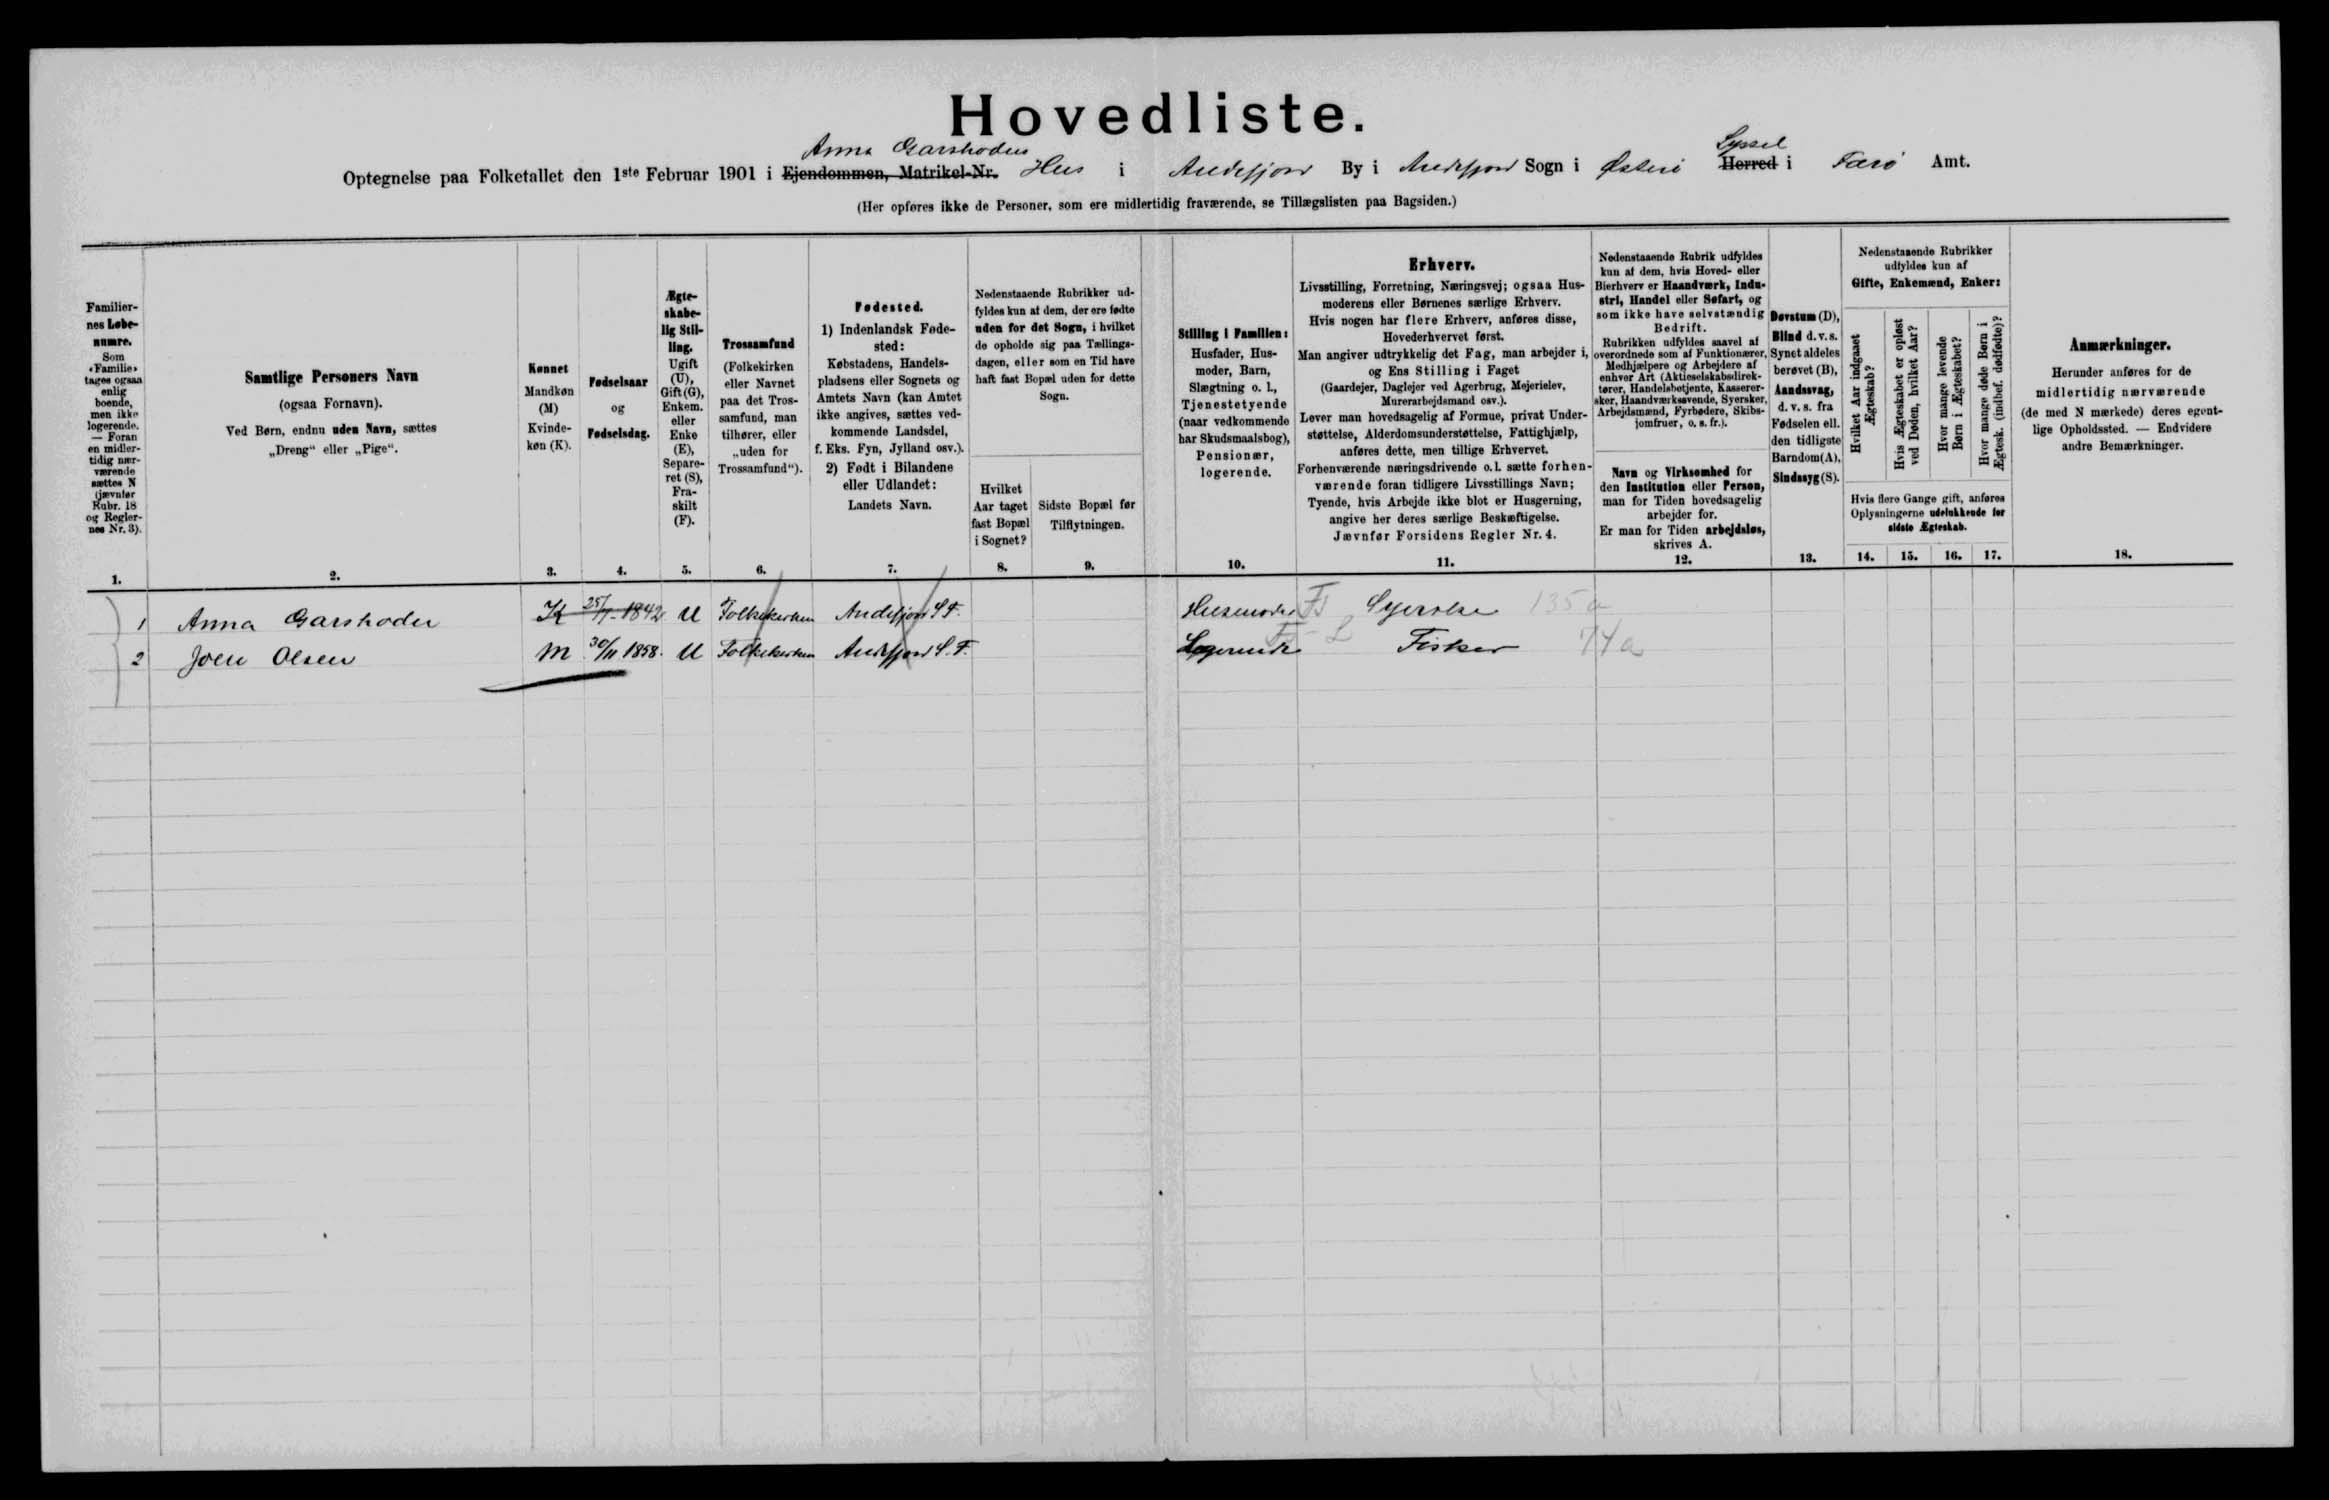 Hovedliste.
Anna Garshoders
Syssel
Optegnelse paa Folketallet den 1ste Februar 1901 i Ejendommen, Matrikel-Nr. Hus i Andefjord By i Andefjord Sogn i Østerö Herred i Færö Amt.
(Her opføres ikke de Personer, som ere midlertidig fraværende, se Tillægslisten paa Bagsiden.)
Familier-
nes Løbe-
numre.
Som
«Familie»
tages ogsaa
enlig
boende,
men ikke
logerende.
— Foran
en midler-
tidig nær-
værende
sættes N
(jævnfør
Rubr. 18
og Regler-
nes Nr. 3).
1.
Samtlige Personers Navn
(ogsaa Fornavn).
Ved Børn, endnu uden Navn, sættes
„Dreng“ eller „Pige“.
2.
Kønnet
Mandkøn
(M)
Kvinde-
køn (K).
3.
Fødselsaar
og
Fødselsdag.
4.
Ægte-
skabe-
lig Stil-
ling.
Ugift
(U),
Gift (G),
Enkem.
eller
Enke
(E),
Separe-
ret (S),
Fra-
skilt
(F).
5.
Trossamfund
(Folkekirken
eller Navnet
paa det Tros-
samfund, man
tilhører, eller
„uden for
Trossamfund“).
6.
Fødested.
1) Indenlandsk Føde-
sted:
Købstadens, Handels-
pladsens eller Sognets og
Amtets Navn (kan Amtet
ikke angives, sættes ved-
kommende Landsdel,
f. Eks. Fyn, Jylland osv.).
2) Født i Bilandene
eller Udlandet:
Landets Navn.
7.
Nedenstaaende Rubrikker ud-
fyldes kun af dem, der ere fødte
uden for det Sogn, i hvilket
de opholde sig paa Tællings-
dagen, eller som en Tid have
haft fast Bopæl uden for dette
Sogn.
Hvilket
Aar taget
fast Bopæl
i Sognet?
8.
Sidste Bopæl før
Tilflytningen.
9.
Stilling i Familien:
Husfader, Hus-
moder, Barn,
Slægtning o. l.,
Tjenestetyende
(naar vedkommende
har Skudsmaalsbog),
Pensionær,
logerende.
10.
Erhverv.
Livsstilling, Forretning, Næringsvej; ogsaa Hus-
moderens eller Børnenes særlige Erhverv.
Hvis nogen har flere Erhverv, anføres disse,
Hovederhvervet først.
Man angiver udtrykkelig det Fag, man arbejder i,
og Ens Stilling i Faget
(Gaardejer, Daglejer ved Agerbrug, Mejerielev,
Murerarbejdsmand osv.).
Lever man hovedsagelig af Formue, privat Under-
støttelse, Alderdomsunderstøttelse, Fattighjælp,
anføres dette, men tillige Erhvervet.
Forhenværende næringsdrivende o.l. sætte forhen-
værende foran tidligere Livsstillings Navn;
Tyende, hvis Arbejde ikke blot er Husgerning,
angive her deres særlige Beskæftigelse.
Jævnfør Forsidens Regler Nr. 4.
11.
Nedenstaaende Rubrik udfyldes
kun af dem, hvis Hoved- eller
Bierhverv er Haandværk, Indu-
stri, Handel eller Søfart, og
som ikke have selvstændig
Bedrift.
Rubrikken udfyldes saavel af
overordnede som af Funktionærer,
Medhjælpere og Arbejdere af
enhver Art (Aktieselskabsdirek-
tører, Handelsbetjente, Kasserer-
sker, Haandværkssvende, Syersker,
Arbejdsmænd, Fyrbødere, Skibs-
jomfruer, o. s. fr.).
Navn og Virksomhed for
den Institution eller Person,
man for Tiden hovedsagelig
arbejder for.
Er man for Tiden arbejdsløs,
skrives A.
12.
Døvstum (D),
Blind d. v. s.
Synet aldeles
berøvet (B),
Aandssvag,
d. v. s. fra
Fødselen ell.
den tidligste
Barndom (A),
Sindssyg (S).
13.
Nedenstaaende Rubrikker
udfyldes kun af
Gifte, Enkemænd, Enker:
Hvilket Aar indgaaet
Ægteskab?
Hvis Ægteskabet er opløst
ved Døden, hvilket Aar?
Hvor mange levende
Børn i Ægteskabet?
Hvor mange døde Børn i
Ægtesk. (indbef. dødfødte)?
Hvis flere Gange gift, anføres
Oplysningerne udelukkende for
sidste Ægteskab.
14. 15. 16. 17.
Anmærkninger.
Herunder anføres for de
midlertidig nærværende
(de med N mærkede) deres egent-
lige Opholdssted. — Endvidere
andre Bemærkninger.
18.
1 Anna Garshoder K 25/11 1842 U Folkekirken Andefjord S.F. Husmoder Fj Syerske 135 a
2 Joen Olsen M 30/11 1858. U Folkekirken Andefjord S.F. Logerende L Fisker 74 a